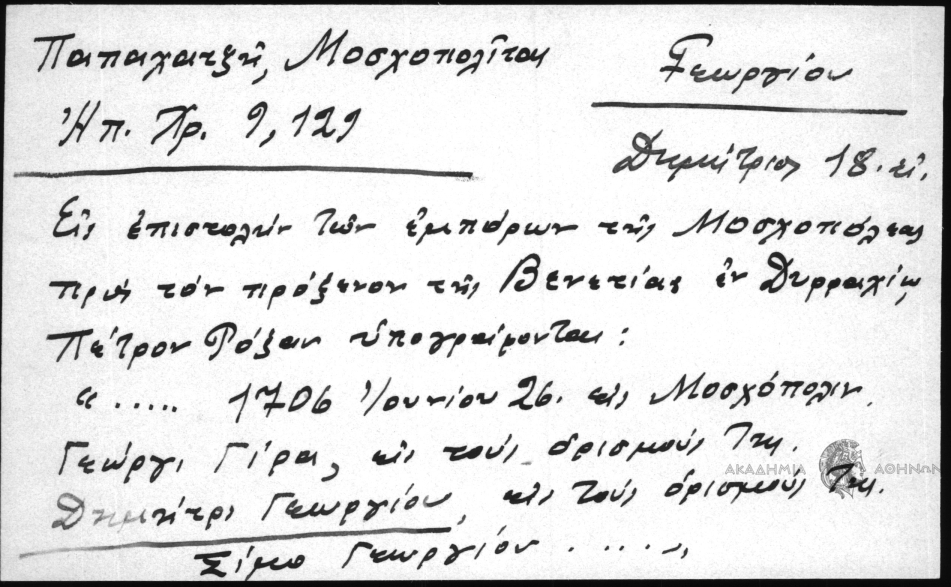 Παπαχατζῆ, Μοσχοπολῖται
Γεωργίου
Ἠπ. Χρ. 9, 129
Δημήτριος 18. αἰ.
Εἰς ἐπιστολήν τῶν ἐμπόρων τῆς Μοσχοπόλεως
πρός τόν πρόξενον τῆς Βενετίας ἐν Δυρραχίῳ
Πέτρον Ρόζαν ὑπογράφονται:
“ ..... 1706 Ἰουνίου 26. εἰς Μοσχόπολιν.
Γεώργι Γίρα, εἰς τούς ὁρισμούς Της.
Δημήτρι Γεωργίου, εἰς τούς ὁρισμούς Της.
Σίμο Γεωργίου .....„
ΑΚΑΔΗΜΙΑ ΑΘΗΝΩΝ